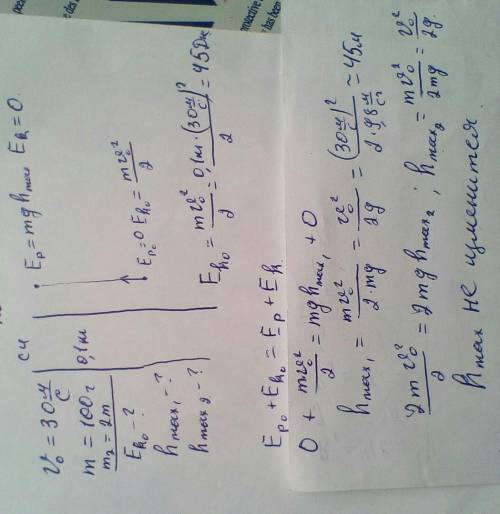 СИ
v₀ = 30 м/с
m = 100 г | 0,1 кг
m₂ = 2m
E_k₀ - ?
h_max₁ - ?
h_max₂ - ?
E_p = mgh_max E_k = 0.
E_p₀ = 0 E_k₀ = mv₀²/2
E_k₀ = mv₀²/2 = 0,1 кг · (30 м/с)²/2 = 45 Дж
E_p₀ + E_k₀ = E_p + E_k.
0 + mv₀²/2 = mgh_max₁ + 0
h_max₁ = mv₀²/2·mg = v₀²/2g = (30 м/с)²/2·9,8 м/с² ≈ 45 м
2mv₀²/2 = 2mgh_max₂ ; h_max₂ = mv₀²/2mg = v₀²/2g.
h_max не изменится